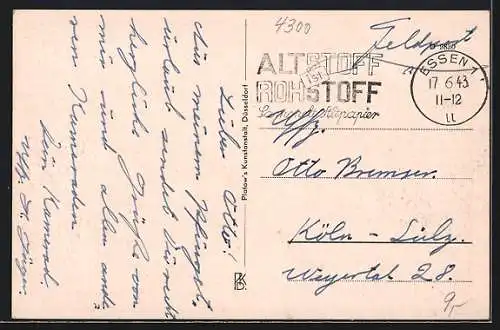 4300
Feldpost
ALTSTOFF
IST
ROHSTOFF
Sammelt Altpapier
ESSEN 1
17.6.43
11-12
ll
Lieber Otto!
Aus meinem Pfingst-
urlaub sendet Dir recht
herzliche Grüße von
mir und allen ande-
ren Kameraden
Dein Kamerad
Uffz.
Platow's Kunstanstalt, Düsseldorf
Uffz.
Otto Bremser.
Köln - Sülz.
Weyertal 28.
9,-